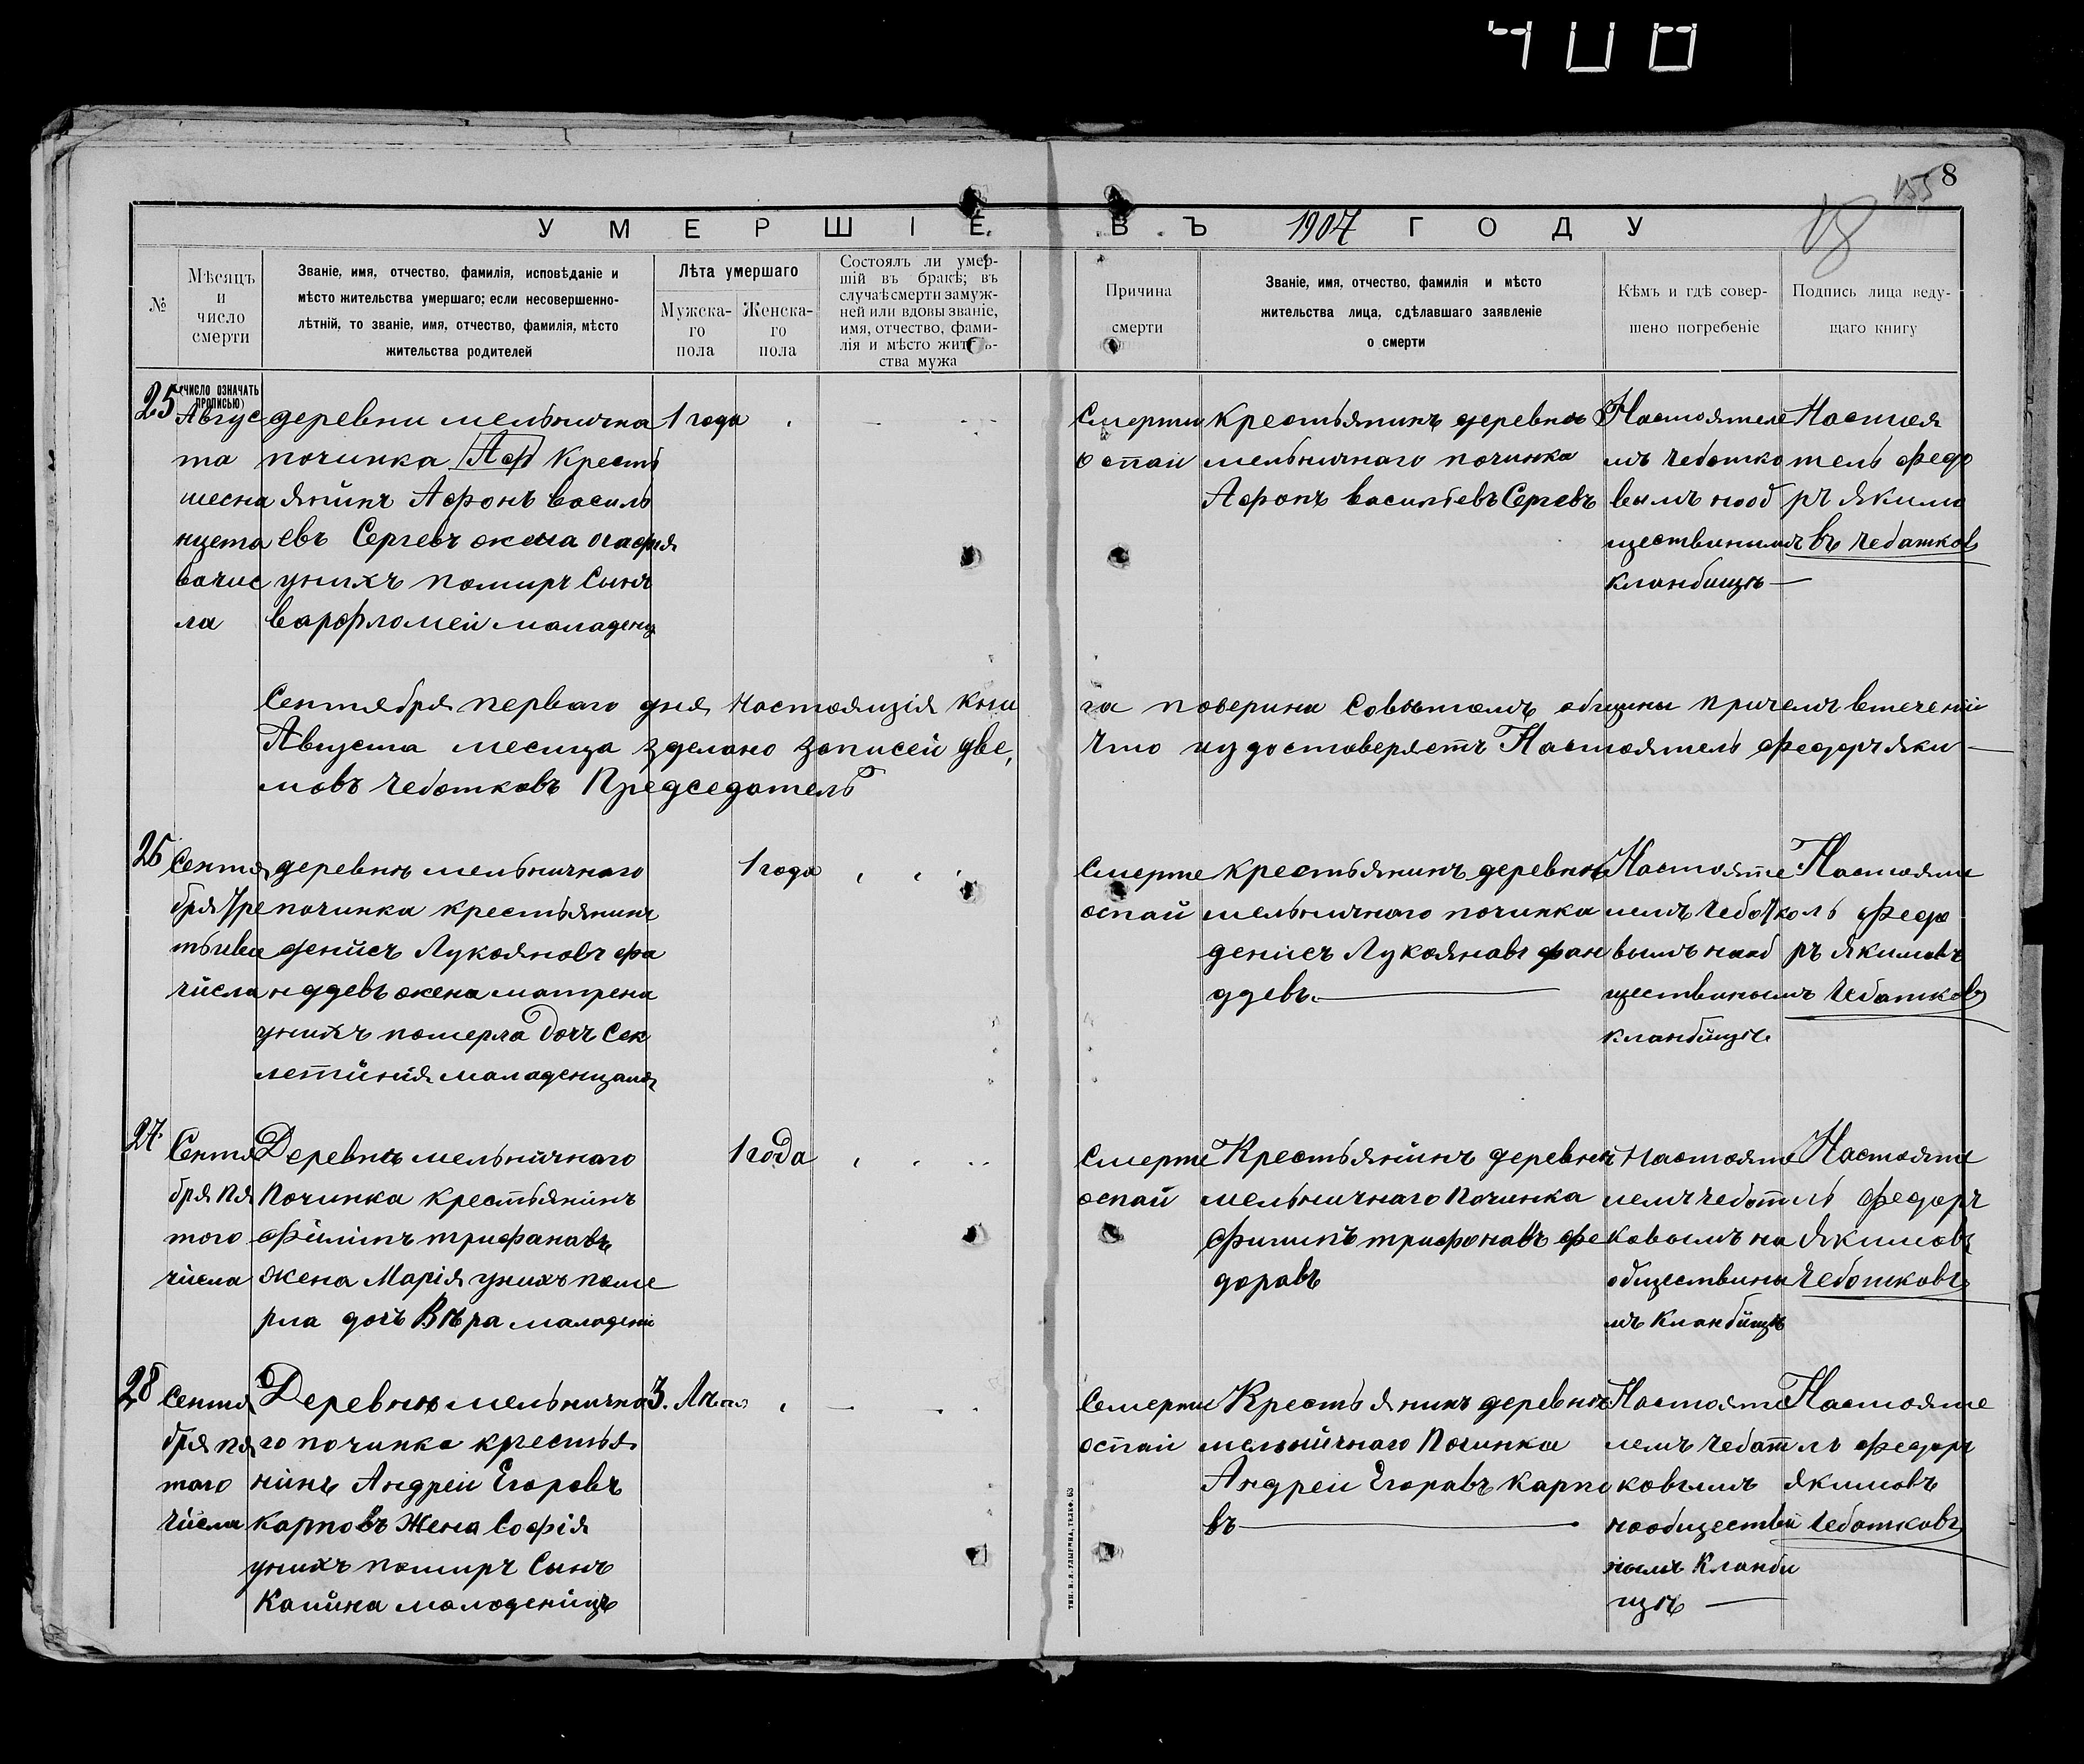 400
155
8
18
УМЕРШІЕ ВЪ 1907 ГОДУ
№
Мѣсяцъ
и
число
смерти
Званіе, имя, отчество, фамилія, исповѣданіе и
мѣсто жительства умершаго; если несовершенно-
лѣтній, то званіе, имя, отчество, фамилія, мѣсто
жительства родителей
Лѣта умершаго
Мужска-
го
пола
Женска-
го
пола
Состоялъ ли умер-
шій въ бракѣ; въ
случаѣ смерти замуж-
ней или вдовы званіе,
имя, отчество, фами-
лія и мѣсто житель-
ства мужа
Причина
смерти
Званіе, имя, отчество, фамилія и мѣсто
жительства лица, сдѣлавшаго заявленіе
о смерти
Кѣмъ и гдѣ совер-
шено погребеніе
Подпись лица веду-
щаго книгу
(ЧИСЛО ОЗНАЧАТЬ
ПРОПИСЬЮ)
25
Авгус
та
шесна
нцета
вачис
ла
деревни мельнична
починка Аф Кресть
янинъ Афонъ василь
евъ Сергевъ жена огафия
унихъ помиръ Сынъ
варфломей маладенц
1 года
Смерти
оспаи
крестьянинъ деревнѣ
мельничнаго починка
Афонъ васильевъ Сергевъ
Настоятеле
мъ Чебатко
вымъ нооб
ществиным
кланбищѣ
Настоя
тель Федо
ръ Якимо
въ Чебатковъ
Сентября перваго дня настоящія кни
га поверина Совѣтомъ общины причемъ втечении
Августа месеца зделано записей две,
что и удостоверяетъ Настоятель Федоръ Яки-
мовъ Чеботковъ Председатель
26
Сентя
бря тре
тьива
числа
деревнѣ мельничнаго
починка крестьянинъ
денисъ Лукояновъ фа
ндѣевъ жена матрена
унихъ померла дочъ Сек
летиния маладенцамъ
1 года
Смерте
оспай
крестьянинъ деревнѣ
мельничнаго починка
денисъ Лукояновъ фан
ддевъ.
Настояте
лемъ Чебатко
вымъ нооб
ществиномъ
кланбищѣ.
Настояте
ль Федо
ръ Якимовъ
Чебатковъ
27.
Сентя
бря пя
того
числа
Деревнѣ мельничнаго
Починка крестьянинъ
Филипъ трифанавъ
жена Марія унихъ поме
рла дочъ Вѣра маладени
1 года
Смерте
оспай
Крестьянинъ деревнѣ
мельничнаго Починка
Филипъ трифонавъ фе
доравъ
Настояте
лемъ Чебат
ковымъ на
обществины
мъ Кланбищѣ
Настояте
ль Федоръ
Якимовъ
Чеботковъ
28
Сентя
бря пя
того
числа
Деревнѣ мельнично
го починка крестья
нинъ Андреи Егоровъ
Карповъ Жена Софія
унихъ помиръ Сынъ
Калина маладеницъ
3. Лѣта
Смерти
оспаи
Крестьянинъ деревнѣ
мельничнаго Починка
Андреи Егоравъ Карпо
въ
Настояте
лемъ Чебат
ковымъ
нообществи
нымъ Кланби
щѣ
Настояте
ль Федоръ
Якимовъ
Чебатковъ